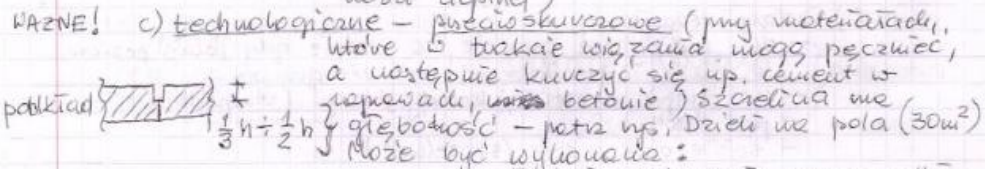 WAŻNE! c) technologiczne – przeciwskurczowe (przy materiałach,
które w trakcie wiązania mogą pęcznieć,
a następnie kurczyć się np. cement w
zaprawach, betonie) Szczelina ma
podkład 1/3 h ÷ 1/2 h } głębokość – patrz rys. Dzieli na pola (30m²)
Może być wykonana: